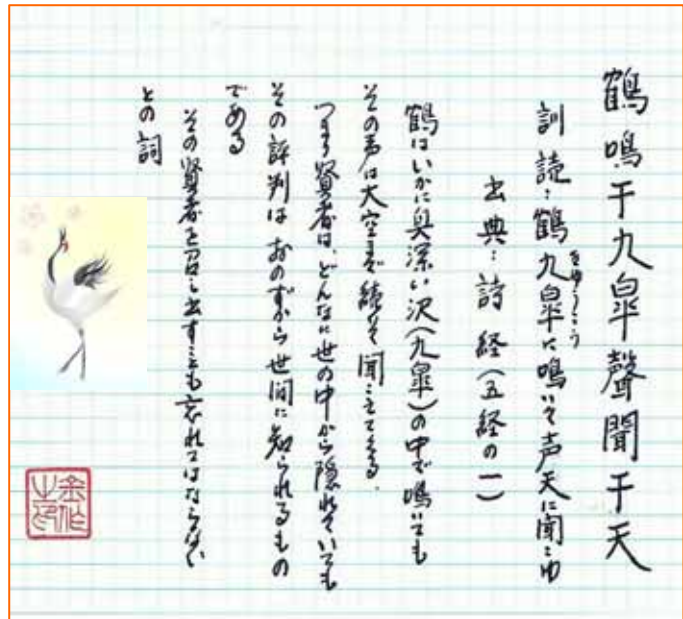 鶴鳴于九皐聲聞于天
訓読：鶴九皐に鳴いて声天に聞こゆ
きゅうこう
出典：詩経（五経の一）
鶴はいかに奥深い沢（九皐）の中で鳴いても
その声は大空まで続いて聞こえてくる.
つまり賢者は、どんなに世の中から隠れていても
その評判は おのずから世間に知られるもの
である
その賢者を召し出すことも忘れてはならない
との詞